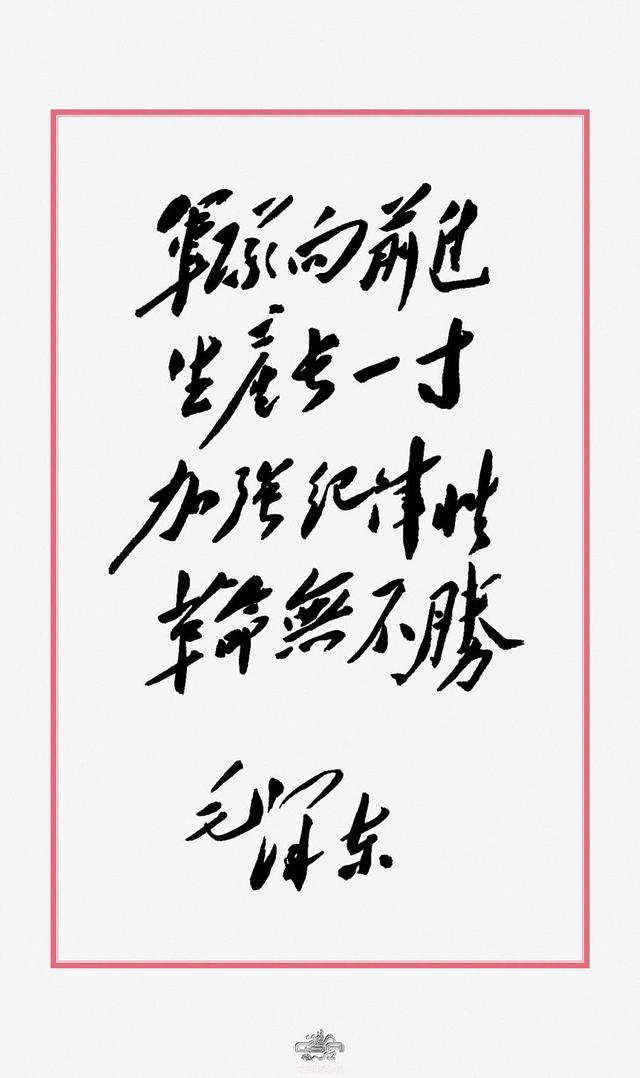 軍隊向前進
生產長一寸
加強紀律性
革命無不勝
毛澤东